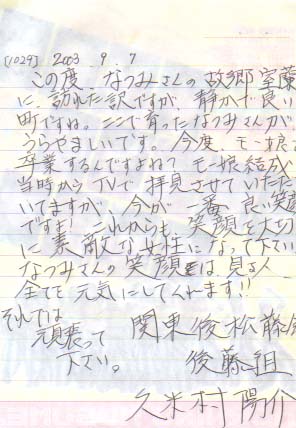 [1029] 2003. 9. 7
この度、なつみさんの故郷室蘭
に、訪れた訳ですが、静かで良い
町ですね。ここで育ったなつみさんが
うらやましいです。今度、モー娘を
卒業するんですよね? モー娘結成
当時からTVで拝見させていただ
いてますが、今が一番良い笑顔
ですよ! これからも、笑顔を大切
に素敵な女性になって下さい。
なつみさんの笑顔は、見る人
全てを元気にしてくれます!!
それでは
頑張って
下さい。
関東俊松藤
後藤組
久米村陽介